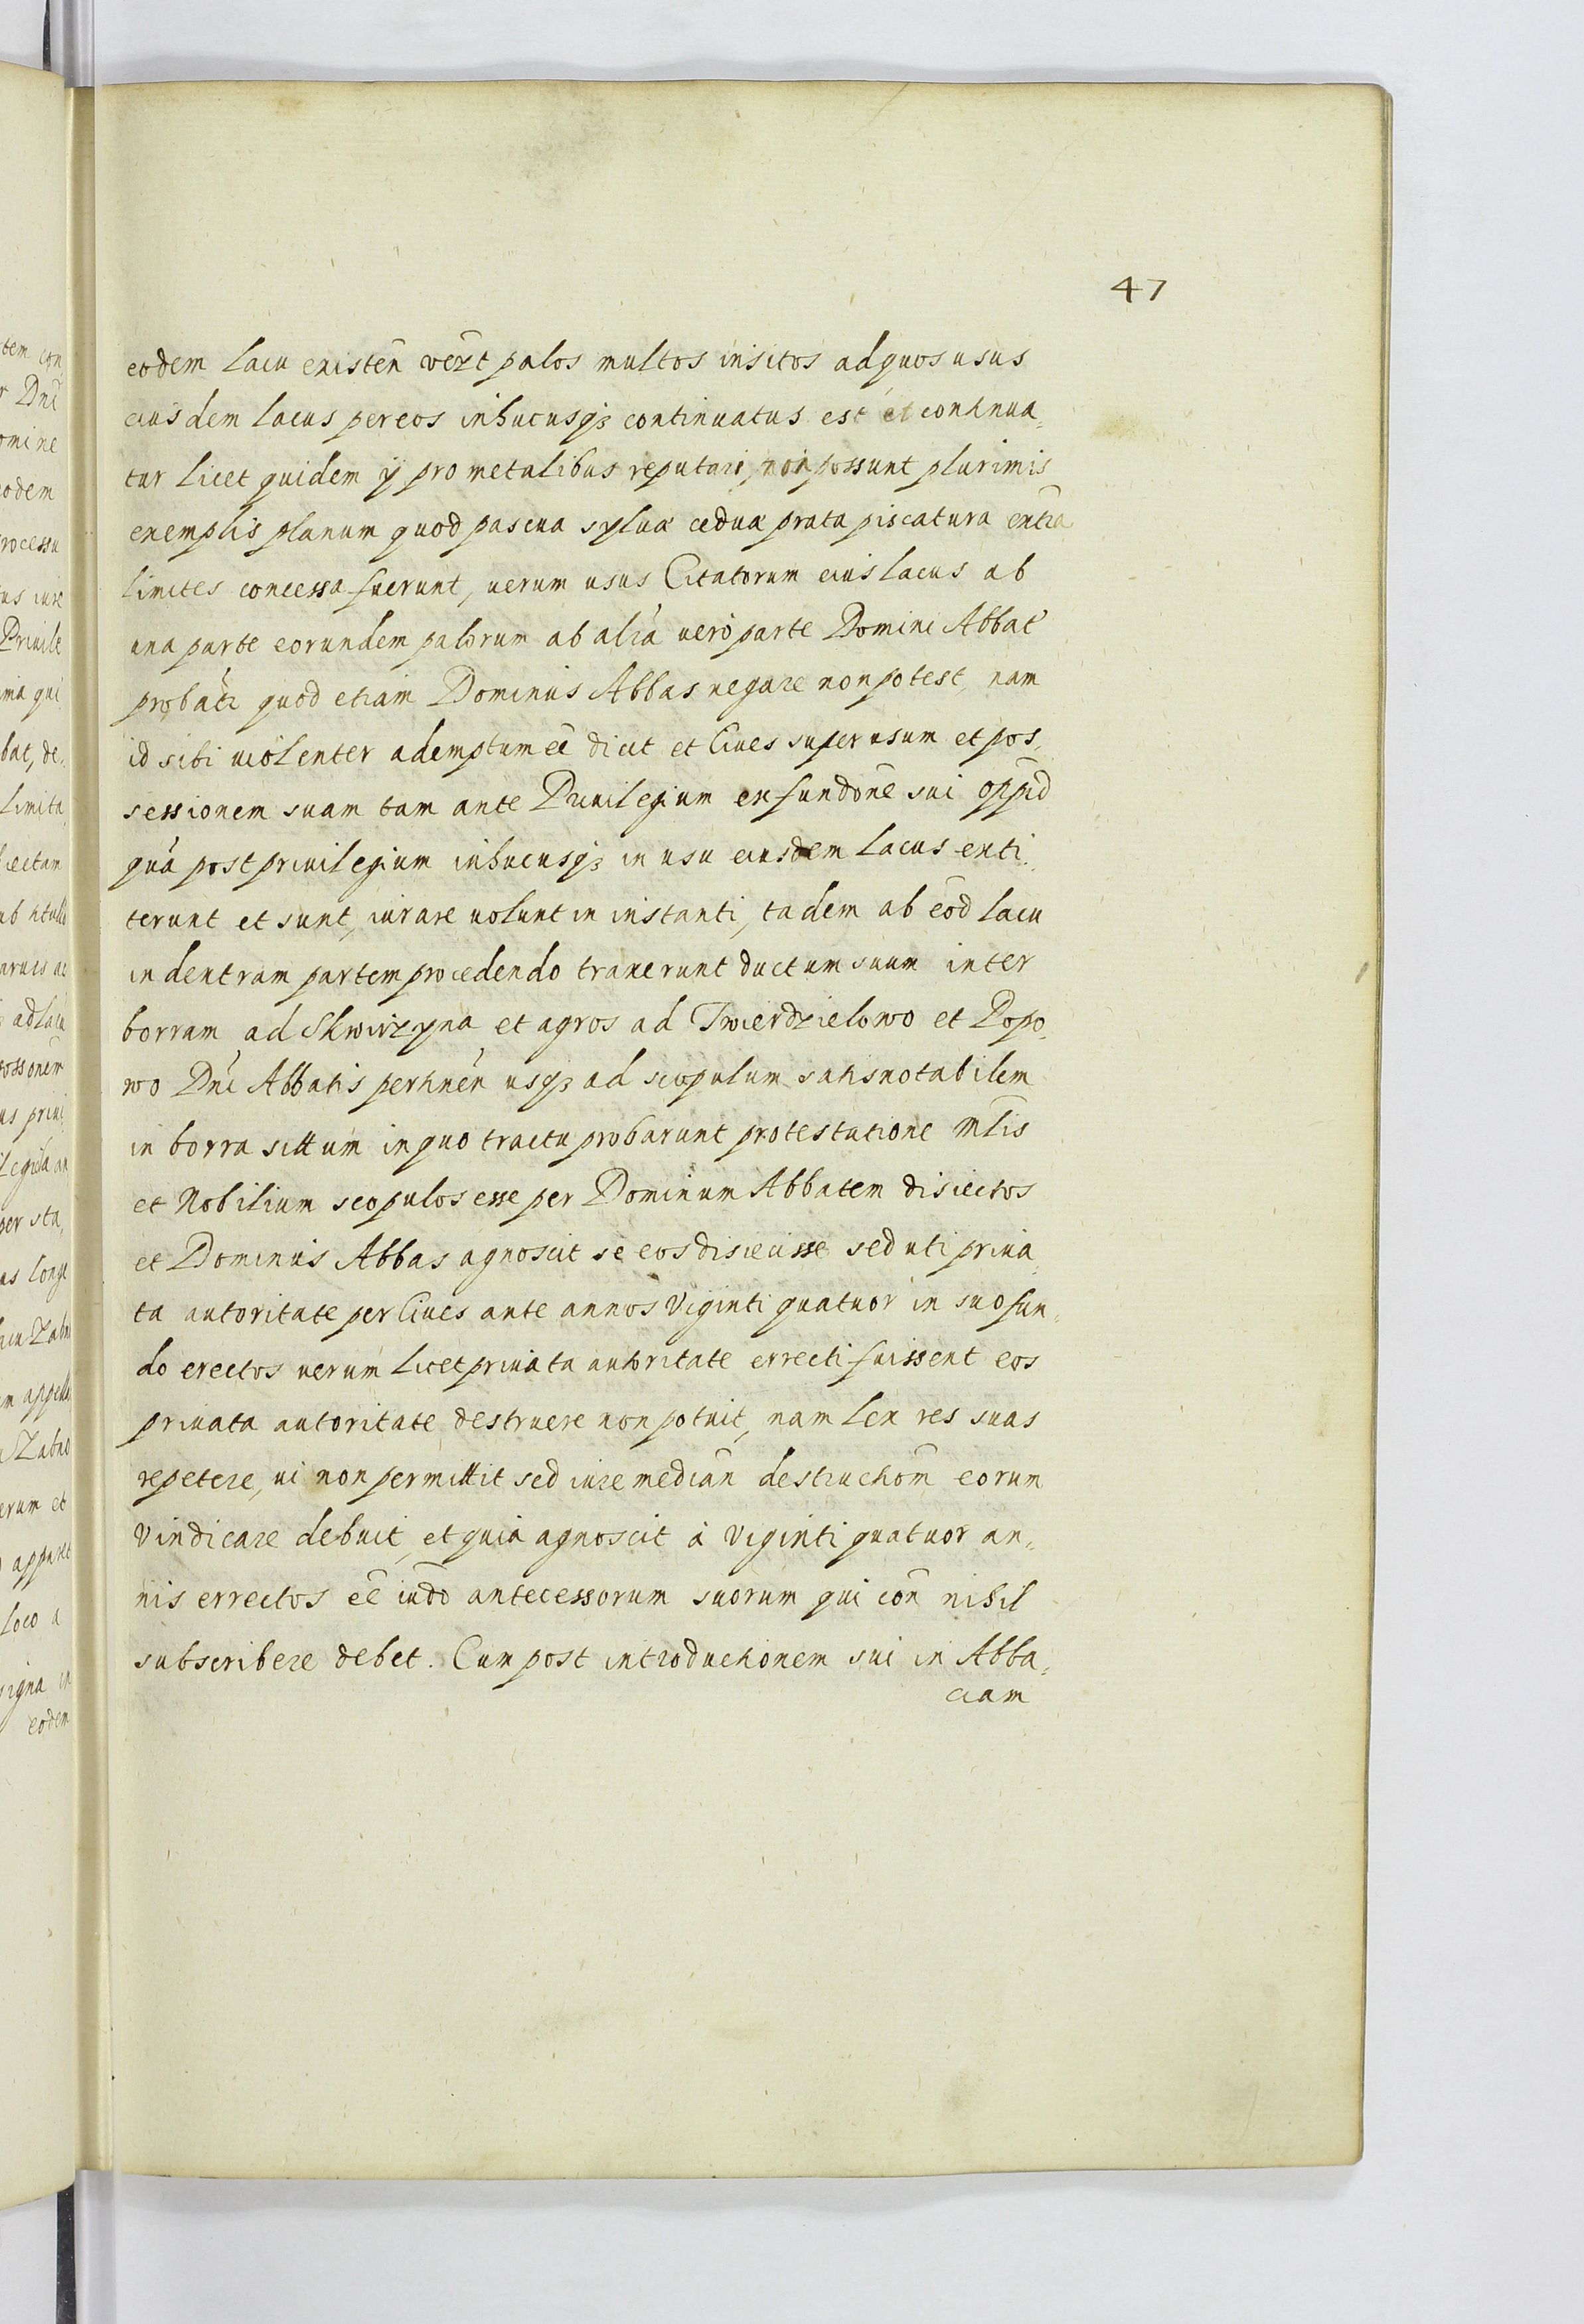 47
eodem lacu existen̄ ver̄t palos multos insitos ad quos usus
eiusdem lacus per eos inhucusqȝ continuatus est et continua„
tur licet quidem ÿ pro metalibus reputari non possunt plurimis
exemplis planum quod pascua sylua cedua prata piscatura extra
limites concessa fuerunt, uerum usus Citatorum eius lacus ab
una parte eorundem palorum ab alia uero parte Domini Abbat
probati quod etiam Dominus Abbas negare non potest, nam
id sibi uiolenter ademptum eē dicit et Ciues super usum et pos„
sessionem suam tam ante Priuilegium ex fundōne sui oppid
quā post priuilegium inhucusqȝ in usu eiusdem lacus exti„
terunt et sunt, iurare uolunt in instanti, tadem ab eōd lacu
in dextram partem procedendo traxerunt ductum suum inter
borram ad Skwirzyna et agros ad Twierdzielowo et Popo„
wo Dn̄i Abbatis pertinēn usqȝ ad scopulum satis notabilem
in borra sittum in quo tractu probarunt protestatione Ml̄is
et Nobilium scopulos esse per Dominum Abbatem disiectos
et Dominus Abbas agnoscit se eos disiecisse sed uti priua„
ta autoritate per Ciues ante annos Viginti quatuor in suo fun„
do erectos uerum licet priuata autoritate errecti fuissent eos
priuata autoritate destruere non potuit, nam lex res suas
repetere, ui non permittit sed iure median̄ destructiom̄ eorum
Vindicare debuit, et quia agnoscit à Viginti quatuor an„
nis errectos eē iudo antecessorum suorum qui con̄ nihil
subscribere debet. Cum post introductionem sui in Abba„
ciam